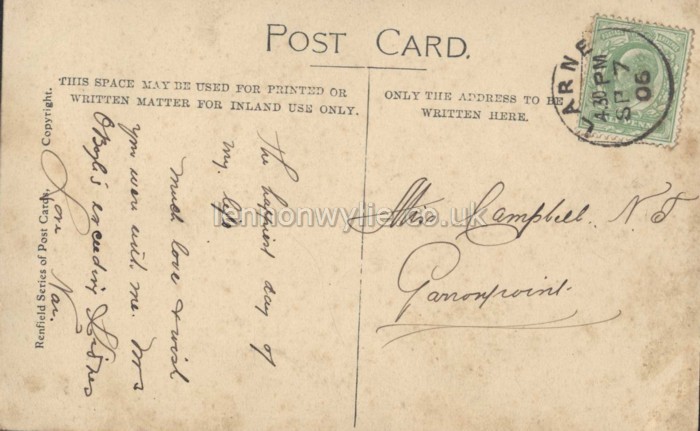 POST CARD.
THIS SPACE MAY BE USED FOR PRINTED OR
WRITTEN MATTER FOR INLAND USE ONLY.
ONLY THE ADDRESS TO BE
WRITTEN HERE.
LARNE
4.30 PM
SP 7
06
The happiest day of
my life
much love & wish
you were with me. Mrs
O'Boyle's exceeding kindness
Love Nan.
Miss Campbell. N. T.
Garronpoint.
Renfield Series of Post Cards, Copyright.
lennonwylie.co.uk